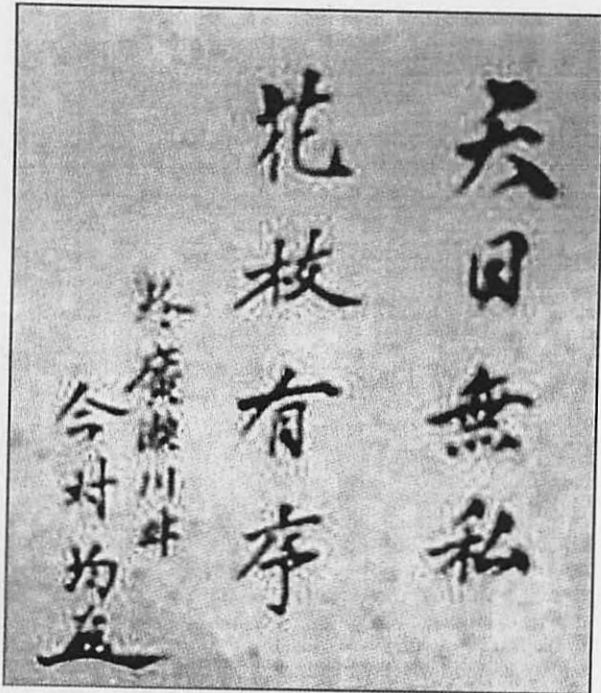 天日無私
花枝有序
於廣瀬川畔
今村均